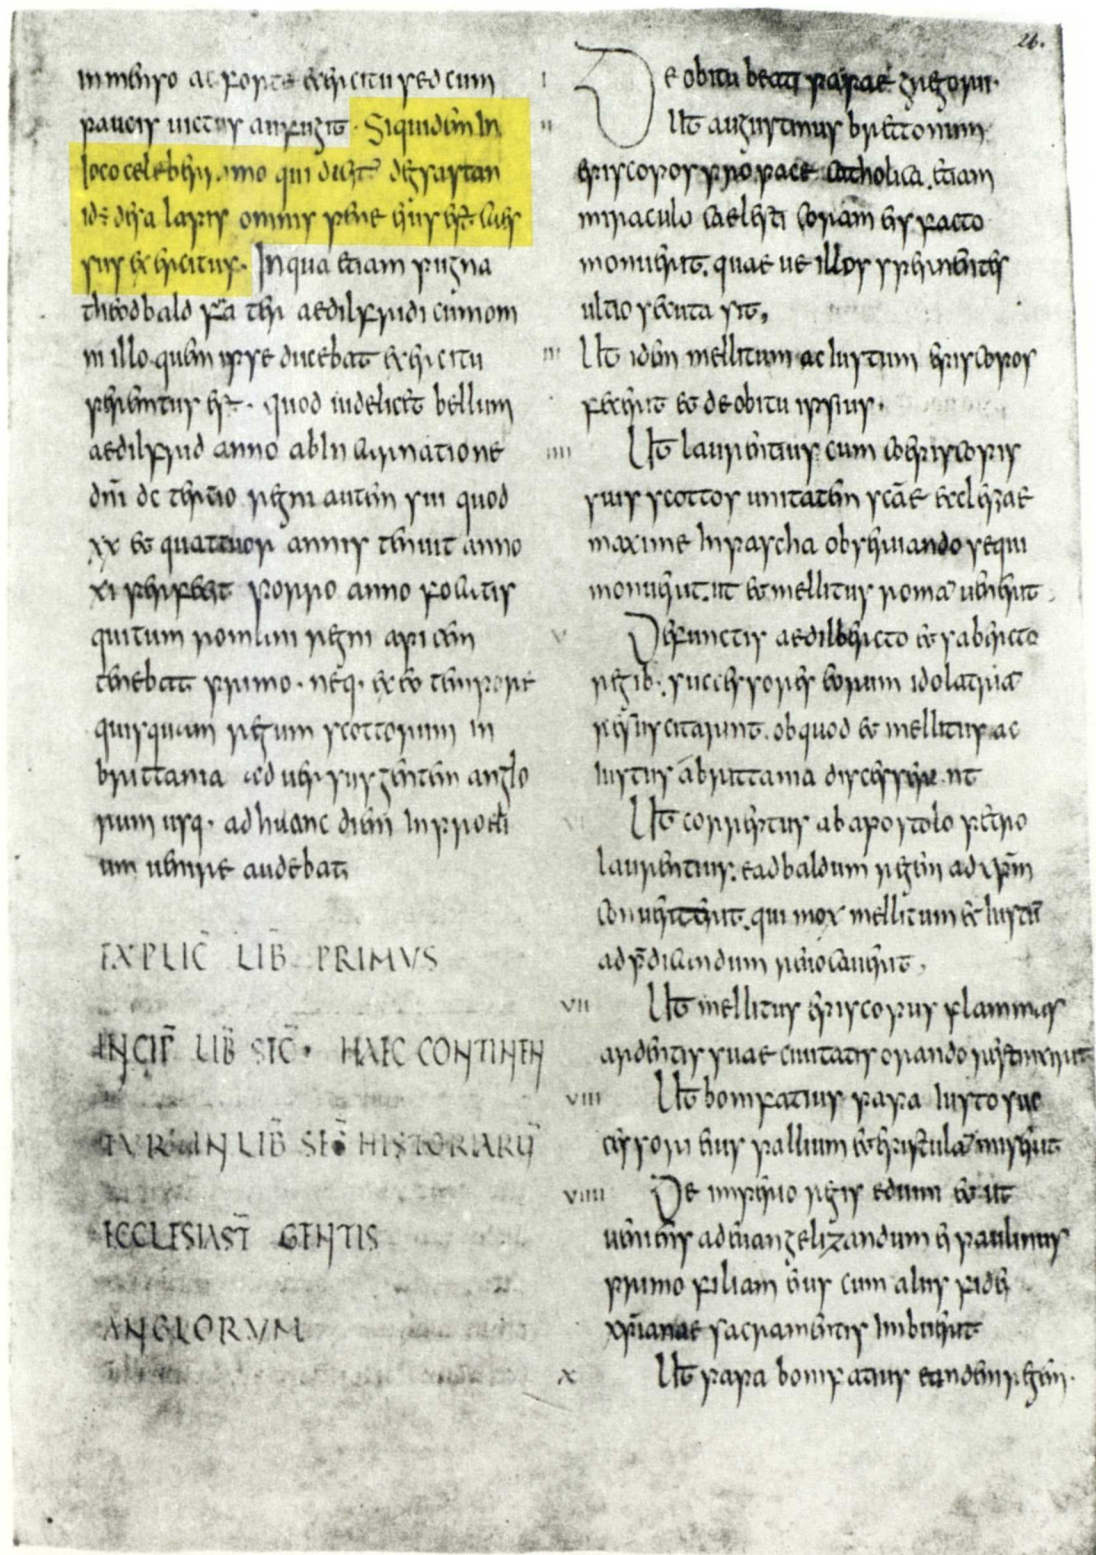 26.
inmenso ac forti exercitu sed cum
paucis uictus aufugit. Siquidem In
loco celeberrimo qui dicit degsastan
id÷ degsa lapis omnis pene eius est caes
sus exercitus. In qua etiam pugna
theodbald frater aedilfridi cum om
ni illo quem ipse ducebat exercitu
peremtus est. quod uidelicet bellum
aedilfrid anno abIncarnatione
dni dc tertio regni autem sui quod
xx et quattuor annis tenuit anno
xi perfecit porro anno focatis
qui tum romani regni apicem
tenebat primo. neq. ex eo tempore
quisquam regum scottorum in
brittania aduersus gentem anglo
rum usq. ad hanc diem Inproeli
um uenire audebat
EXPLIC LIB PRIMVS
INCIP LIB SEC. HAEC CONTINEN
TVR IN LIB SEC HISTORIARU
ECCLESIAST GENTIS
ANGLORVM
I De obitu beati papae gregorii.
II Ut augustinus brettonum
episcopos pro pace catholica. etiam
miraculo caelesti coram eis facto
monuerit. quae ue illos spernentes
ultio secuta sit,
III Ut idem mellitum ac Iustum episcopos
fecerit et de obitu ipsius.
IIII Ut laurentius cum coepiscopis
suis scottos unitatem scae ecclesiae
maxime Inpascha obseruando sequi
monuerit. ut et mellitus roma uenerit
V Defunctis aedilbercto et sabercto
regib. successores eorum idolatria
resuscitarunt. ob quod et mellitus ac
Iustus abrittania discesserint
VI Ut correptus ab apostolo petro
laurentius. eadbaldum regem ad xpm
conuerterit. qui mox mellitum et Iustu
ad pdicandum reuocauerit.
VII Ut mellitus episcopus flammas
ardentis suae ciuitatis orando restinxerit
VIII Ut bonifatius papa Iusto suc
cessori eius pallium et epistula miserit
VIIII De imperio regis eduini et ut
ueniens ad euangelizandum ei paulinus
primo filiam eius cum aliis fidei
xpianae sacramentis Inbuerit
X Ut papa bonifatius eundem regem.